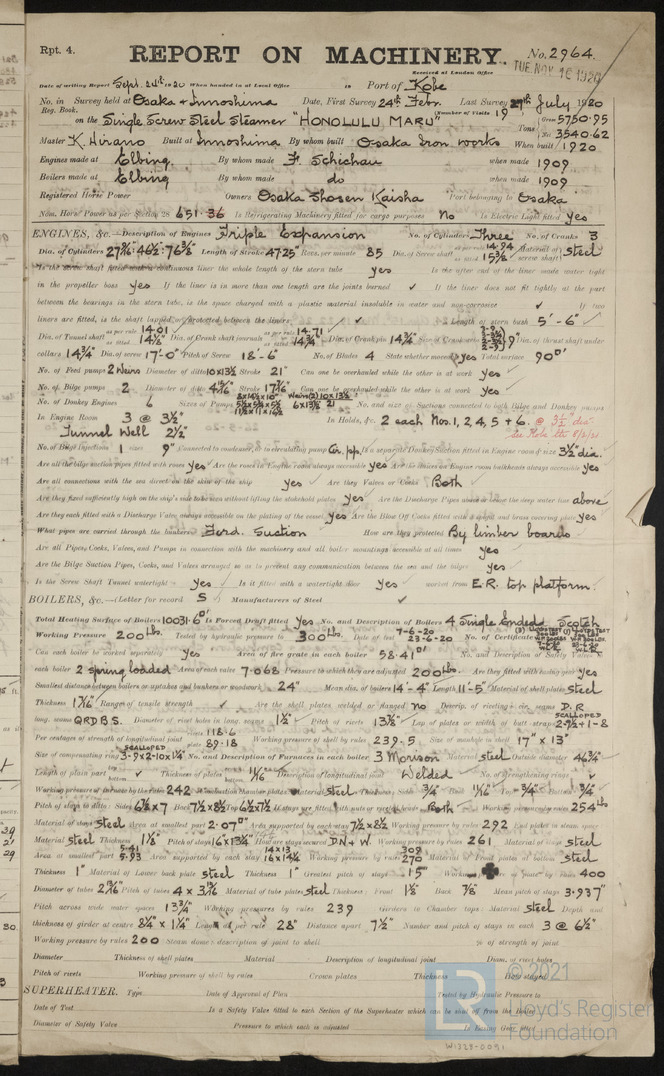 Rpt. 4.
REPORT ON MACHINERY.
No. 2964.
TUE. NOV. 16 1920
Received at London Office
Date of writing Report Sept. 24th 1920 When handed in at Local Office 19 Port of Kobe
No. in Reg. Book. Survey held at Osaka & Innoshima Date, First Survey 24th Febr. Last Survey July 1920
on the Single Screw Steel Steamer "HONOLULU MARU" (Number of Visits 19
Tons Gross 5750.95 Net 3540.62
Master K. Hirano Built at Innoshima By whom built Osaka Iron works When built 1920
Engines made at Elbing. By whom made F. Schichau when made 1909
Boilers made at Elbing By whom made do when made 1909
Registered Horse Power Owners Osaka Shosen Kaisha Port belonging to Osaka
Nom. Horse Power as per Section 28 651.36 Is Refrigerating Machinery fitted for cargo purposes No Is Electric Light fitted yes
ENGINES, &c.—Description of Engines Triple Expansion No. of Cylinders Three No. of Cranks 3
Dia. of Cylinders 27 9/16": 46 1/2": 76 3/8" Length of Stroke 47.25" Revs. per minute 85 Dia. of Screw shaft as per rule 14.94 as fitted 15 3/8" Material of screw shaft steel
Is the screw shaft fitted with a continuous liner the whole length of the stern tube yes Is the after end of the liner made water tight
in the propeller boss yes If the liner is in more than one length are the joints burned ✓ If the liner does not fit tightly at the part
between the bearings in the stern tube, is the space charged with a plastic material insoluble in water and non-corrosive ✓ If two
liners are fitted, is the shaft lapped or protected between the liners ✓ Length of stern bush 5'-6"
Dia. of Tunnel shaft as per rule 14.01 as fitted 14 1/8" Dia. of Crank shaft journals as per rule 14.71 as fitted 14 3/4" Dia. of Crank pin 14 3/4" Size of Crank webs 9" Dia. of thrust shaft under
collars 14 3/4" Dia. of screw 17'-0" Pitch of Screw 18'-6" No. of Blades 4 State whether moveable yes Total surface 90□'
No. of Feed pumps 2 Weirs Diameter of ditto 10x13 1/2 Stroke 21" Can one be overhauled while the other is at work yes
No. of Bilge pumps 2 Diameter of ditto 4 15/16" Stroke 17 7/16" Can one be overhauled while the other is at work yes
No. of Donkey Engines 6 Sizes of Pumps No. and size of Suctions connected to both Bilge and Donkey pumps
In Engine Room 3 @ 3 1/2" In Holds, &c. 2 each Nos. 1, 2, 4, 5 + 6. @ 3 1/2" dia.
Tunnel Well 2 1/2"
No. of Bilge Injections 1 sizes 9" Connected to condenser, or to circulating pump Cir. pp. Is a separate Donkey Suction fitted in Engine room & size 3 1/2" dia.
Are all the bilge suction pipes fitted with roses yes Are the roses in Engine room always accessible yes Are the sluices on Engine room bulkheads always accessible yes
Are all connections with the sea direct on the skin of the ship yes Are they Valves or Cocks Both
Are they fixed sufficiently high on the ship's side to be seen without lifting the stokehold plates yes Are the Discharge Pipes above or below the deep water line above
Are they each fitted with a Discharge Valve always accessible on the plating of the vessel yes Are the Blow Off Cocks fitted with a spigot and brass covering plate yes
What pipes are carried through the bunkers Ford. Suction How are they protected By limber boards
Are all Pipes, Cocks, Valves, and Pumps in connection with the machinery and all boiler mountings accessible at all times yes
Are the Bilge Suction Pipes, Cocks, and Valves arranged so as to prevent any communication between the sea and the bilges yes
Is the Screw Shaft Tunnel watertight yes Is it fitted with a watertight door yes worked from E.R. top platform.
BOILERS, &c.—(Letter for record S) Manufacturers of Steel ✓
Total Heating Surface of Boilers 10031.6□' Is Forced Draft fitted yes No. and Description of Boilers 4 Single Ended Scotch
Working Pressure 200 lbs. Tested by hydraulic pressure to 300 lbs. Date of test 7-6-20 23-6-20 No. of Certificate
Can each boiler be worked separately yes Area of fire grate in each boiler 58.41□' No. and Description of Safety Valves to
each boiler 2 spring loaded Area of each valve 7.068 Pressure to which they are adjusted 200 lbs. Are they fitted with easing gear yes
Smallest distance between boilers or uptakes and bunkers or woodwork 24" Mean dia. of boilers 14'-4" Length 11'-5" Material of shell plates steel
Thickness 1 7/16" Range of tensile strength ✓ Are the shell plates welded or flanged no Descrip. of riveting: cir. seams D.R
long. seams QRDBS. Diameter of rivet holes in long. seams 1 1/2" Pitch of rivets 13 3/4" Lap of plates or width of butt straps SCALLOPED 2-9 1/2 + 1-8
Per centages of strength of longitudinal joint 118.6 89.18 Working pressure of shell by rules 239.5 Size of manhole in shell 17" x 13"
Size of compensating ring SCALLOPED 3-9x2-10x1 1/4" No. and Description of Furnaces in each boiler 3 Morison Material steel Outside diameter 46 3/4"
Length of plain part ✓ Thickness of plates 11/16" Description of longitudinal joint Welded No. of strengthening rings ✓
Working pressure of furnace by the rules 242 Combustion chamber plates: Material steel Thickness: Sides 3/4" Back 11/16" Top 3/4" Bottom 3/4"
Pitch of stays to ditto: Sides 6 1/2 x 7 Back 7 1/2 x 8 1/2 Top 6 1/2 x 7 1/2 If stays are fitted with nuts or riveted heads Both Working pressure by rules 254 lbs
Material of stays steel Area at smallest part 2.07□" Area supported by each stay 7 1/2 x 8 1/2 Working pressure by rules 292 End plates in steam space
Material steel Thickness 1 1/8" Pitch of stays 16x13 3/4" How are stays secured D.N + W. Working pressure by rules 261 Material of stays steel
Area at smallest part 5.41 5.93 Area supported by each stay 14x13 16x14 1/4 Working pressure by rules 309 270 Material of Front plates at bottom steel
Thickness 1" Material of Lower back plate steel Thickness 1" Greatest pitch of stays 15" Working pressure of plate by rules 400
Diameter of tubes 2 9/16" Pitch of tubes 4 x 3 15/16 Material of tube plates steel Thickness: Front 1 1/8" Back 7/8" Mean pitch of stays 3.937"
Pitch across wide water spaces 13 3/4" Working pressures by rules 239 Girders to Chamber tops: Material steel Depth and
thickness of girder at centre 8 1/4" x 1 1/4" Length as per rule 28" Distance apart 7 1/2" Number and pitch of stays in each 3 @ 6 1/2"
Working pressure by rules 200 Steam dome: description of joint to shell % of strength of joint
Diameter Thickness of shell plates Material Description of longitudinal joint Diam. of rivet holes
Pitch of rivets Working pressure of shell by rules Crown plates Thickness How stayed
SUPERHEATER. Type Date of Approval of Plan Tested by Hydraulic Pressure to
Date of Test Is a Safety Valve fitted to each Section of the Superheater which can be shut off from the Boiler
Diameter of Safety Valve Pressure to which each is adjusted Is Easing Gear fitted
© 2021
Lloyd's Register
Foundation
LR
W1328-0091